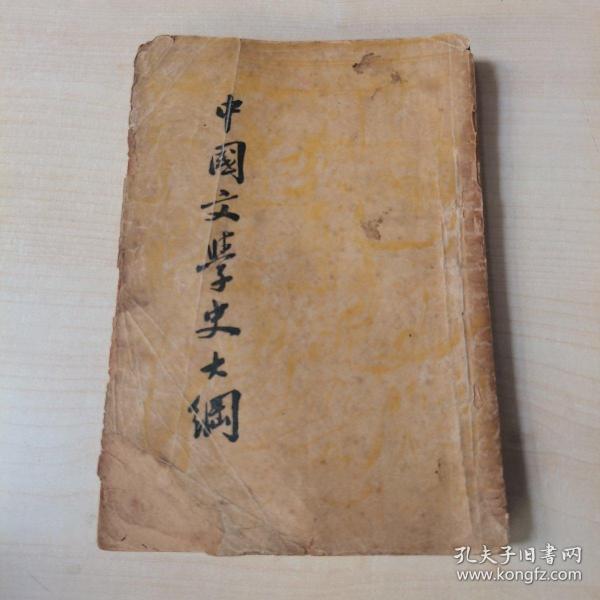 中國文學史大綱
孔夫子旧书网
www.kongfz.com